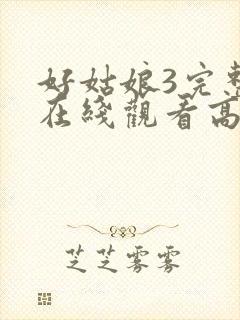 好姑娘3完整
在线观看高
芝芝雾雾